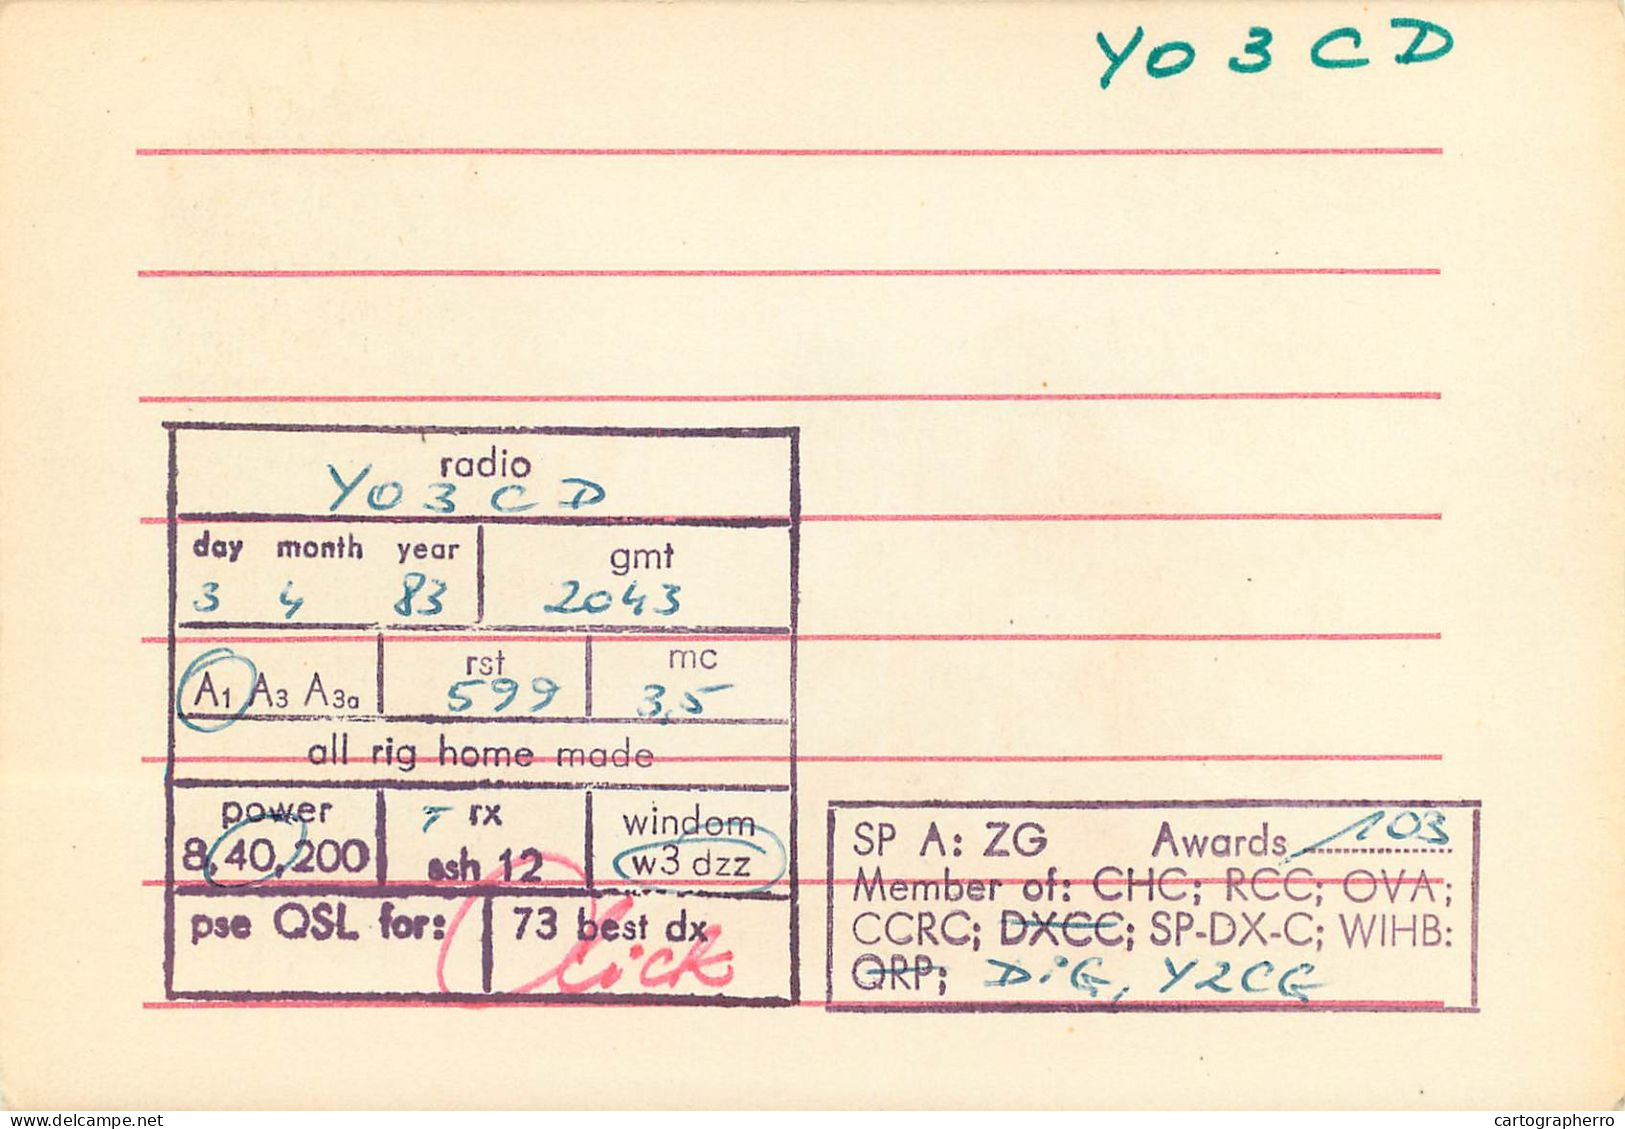 YO3CD
radio
YO3CD
day month year gmt
3 4 83 2043
A1 A3 A3a rst 599 mc 3,5
all rig home made
power rx windom
8,40,200 ssh 12 w3dzz
pse QSL for: 73 best dx
SP A: ZG Awards 103
Member of: CHC; RCC; OVA;
CCRC; DXCC; SP-DX-C; WIHB:
QRP; DiG, Y2CG
cartographerro
delcampe.net